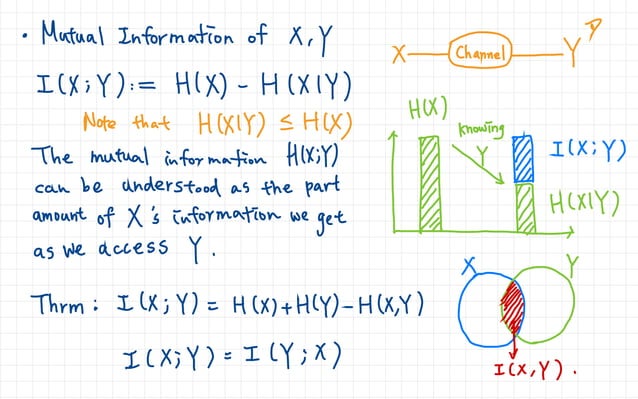 • Mutual Information of X, Y
I(X;Y) := H(X) - H(X|Y)
Note that H(X|Y) ≤ H(X)
The mutual information H(X;Y)
can be understood as the part
amount of X's information we get
as we access Y.
Thrm: I(X;Y) = H(X)+H(Y)-H(X,Y)
I(X;Y) = I(Y;X)
X Channel Y
H(X)
knowing
Y
I(X;Y)
H(X|Y)
X Y
I(X,Y).